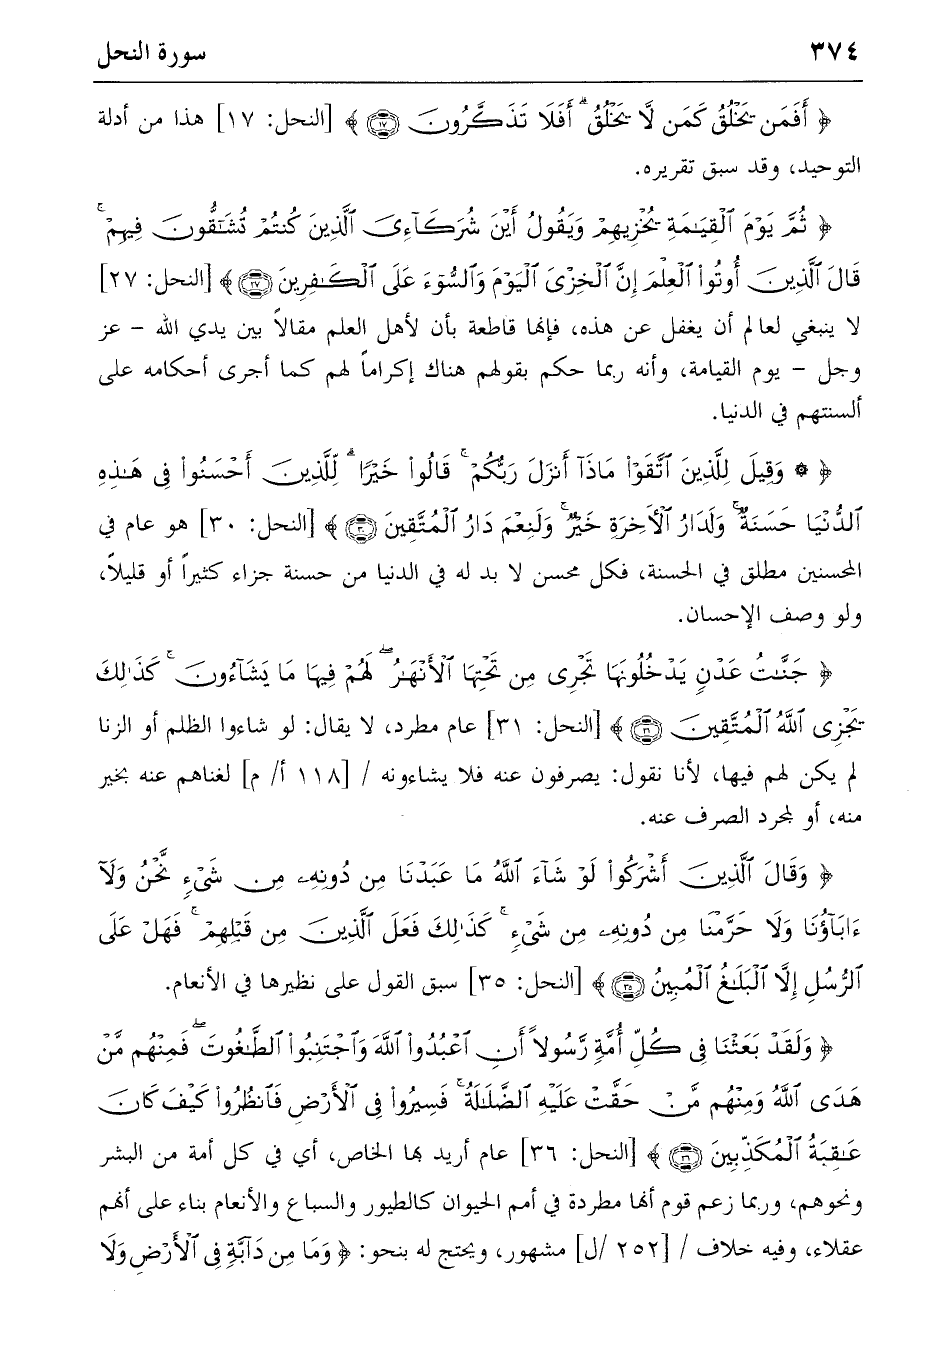 ٣٧٤ سورة النحل
﴿ أَفَمَن يَخْلُقُ كَمَن لَّا يَخْلُقُ ۗ أَفَلَا تَذَكَّرُونَ ﴿١٧﴾ ﴾ [النحل: ١٧] هذا من أدلة
التوحيد، وقد سبق تقريره.
﴿ ثُمَّ يَوْمَ ٱلْقِيَـٰمَةِ يُخْزِيهِمْ وَيَقُولُ أَيْنَ شُرَكَآءِىَ ٱلَّذِينَ كُنتُمْ تُشَـٰٓقُّونَ فِيهِمْ ۚ
قَالَ ٱلَّذِينَ أُوتُوا۟ ٱلْعِلْمَ إِنَّ ٱلْخِزْىَ ٱلْيَوْمَ وَٱلسُّوٓءَ عَلَى ٱلْكَـٰفِرِينَ ﴿٢٧﴾ ﴾ [النحل: ٢٧]
لا ينبغي لعالم أن يغفل عن هذه، فإنها قاطعة بأن لأهل العلم مقالاً بين يدي الله – عز
وجل – يوم القيامة، وأنه ربما حكم بقولهم هناك إكراماً لهم كما أجرى أحكامه على
ألسنتهم في الدنيا.
﴿ ۞ وَقِيلَ لِلَّذِينَ ٱتَّقَوْا۟ مَاذَآ أَنزَلَ رَبُّكُمْ ۚ قَالُوا۟ خَيْرًا ۗ لِّلَّذِينَ أَحْسَنُوا۟ فِى هَـٰذِهِ
ٱلدُّنْيَا حَسَنَةٌ ۚ وَلَدَارُ ٱلْأَخِرَةِ خَيْرٌ ۚ وَلَنِعْمَ دَارُ ٱلْمُتَّقِينَ ﴿٣٠﴾ ﴾ [النحل: ٣٠] هو عام في
المحسنين مطلق في الحسنة، فكل محسن لا بد له في الدنيا من حسنة جزاء كثيراً أو قليلاً،
ولو وصف الإحسان.
﴿ جَنَّـٰتُ عَدْنٍ يَدْخُلُونَهَا تَجْرِى مِن تَحْتِهَا ٱلْأَنْهَـٰرُ ۖ لَهُمْ فِيهَا مَا يَشَآءُونَ ۚ كَذَٰلِكَ
يَجْزِى ٱللَّهُ ٱلْمُتَّقِينَ ﴿٣١﴾ ﴾ [النحل: ٣١] عام مطرد، لا يقال: لو شاءوا الظلم أو الزنا
لم يكن لهم فيها، لأنا نقول: يصرفون عنه فلا يشاءونه / [١١٨ أ/ م] لغناهم عنه بخير
منه، أو لمجرد الصرف عنه.
﴿ وَقَالَ ٱلَّذِينَ أَشْرَكُوا۟ لَوْ شَآءَ ٱللَّهُ مَا عَبَدْنَا مِن دُونِهِۦ مِن شَىْءٍ نَّحْنُ وَلَآ
ءَابَآؤُنَا وَلَا حَرَّمْنَا مِن دُونِهِۦ مِن شَىْءٍ ۚ كَذَٰلِكَ فَعَلَ ٱلَّذِينَ مِن قَبْلِهِمْ ۚ فَهَلْ عَلَى
ٱلرُّسُلِ إِلَّا ٱلْبَلَـٰغُ ٱلْمُبِينُ ﴿٣٥﴾ ﴾ [النحل: ٣٥] سبق القول على نظيرها في الأنعام.
﴿ وَلَقَدْ بَعَثْنَا فِى كُلِّ أُمَّةٍ رَّسُولاً أَنِ ٱعْبُدُوا۟ ٱللَّهَ وَٱجْتَنِبُوا۟ ٱلطَّـٰغُوتَ ۖ فَمِنْهُم مَّنْ
هَدَى ٱللَّهُ وَمِنْهُم مَّنْ حَقَّتْ عَلَيْهِ ٱلضَّلَـٰلَةُ ۚ فَسِيرُوا۟ فِى ٱلْأَرْضِ فَٱنظُرُوا۟ كَيْفَ كَانَ
عَـٰقِبَةُ ٱلْمُكَذِّبِينَ ﴿٣٦﴾ ﴾ [النحل: ٣٦] عام أريد بها الخاص، أي في كل أمة من البشر
ونحوهم، وربما زعم قوم أنها مطردة في أمم الحيوان كالطيور والسباع والأنعام بناء على أنهم
عقلاء، وفيه خلاف / [٢٥٢ /ل] مشهور، ويحتج له بنحو: ﴿ وَمَا مِن دَآبَّةٍ فِى ٱلْأَرْضِ وَلَا